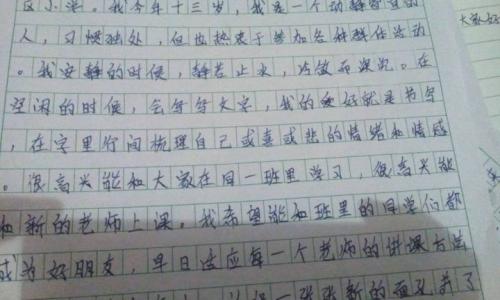 小学。我今年十三岁，我是一个动静皆宜的
人，习惯独处，但也热衷于参加各种趣味活动
。我安静的时候，静若止水，冷傲而深沉。在
空闲的时候，会写写文字，我的爱好就是书写
，在字里行间梳理自己或喜或悲的情绪和情感
。很高兴能和大家在同一班里学习，很高兴能
和新的老师上课。我希望能和班里的同学们都
成为好朋友，早日适应每一个老师的讲课方法
一张张新的面孔
大家好